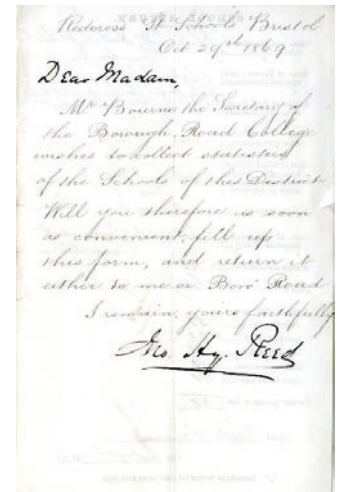 Redcross St Schools Bristol
Oct 29th 1869
Dear Madam,
Mr Bourne the Secretary of
the Borough Road College
wishes to collect statistics
of the Schools of this District.
Will you therefore as soon
as convenient, fill up
this form, and return it
either to me or Boro' Road
I remain, yours faithfully
Jno. Hy. Reed